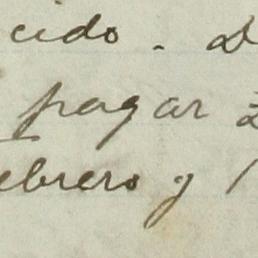 cido. D
pagar 2
ebrero y 1